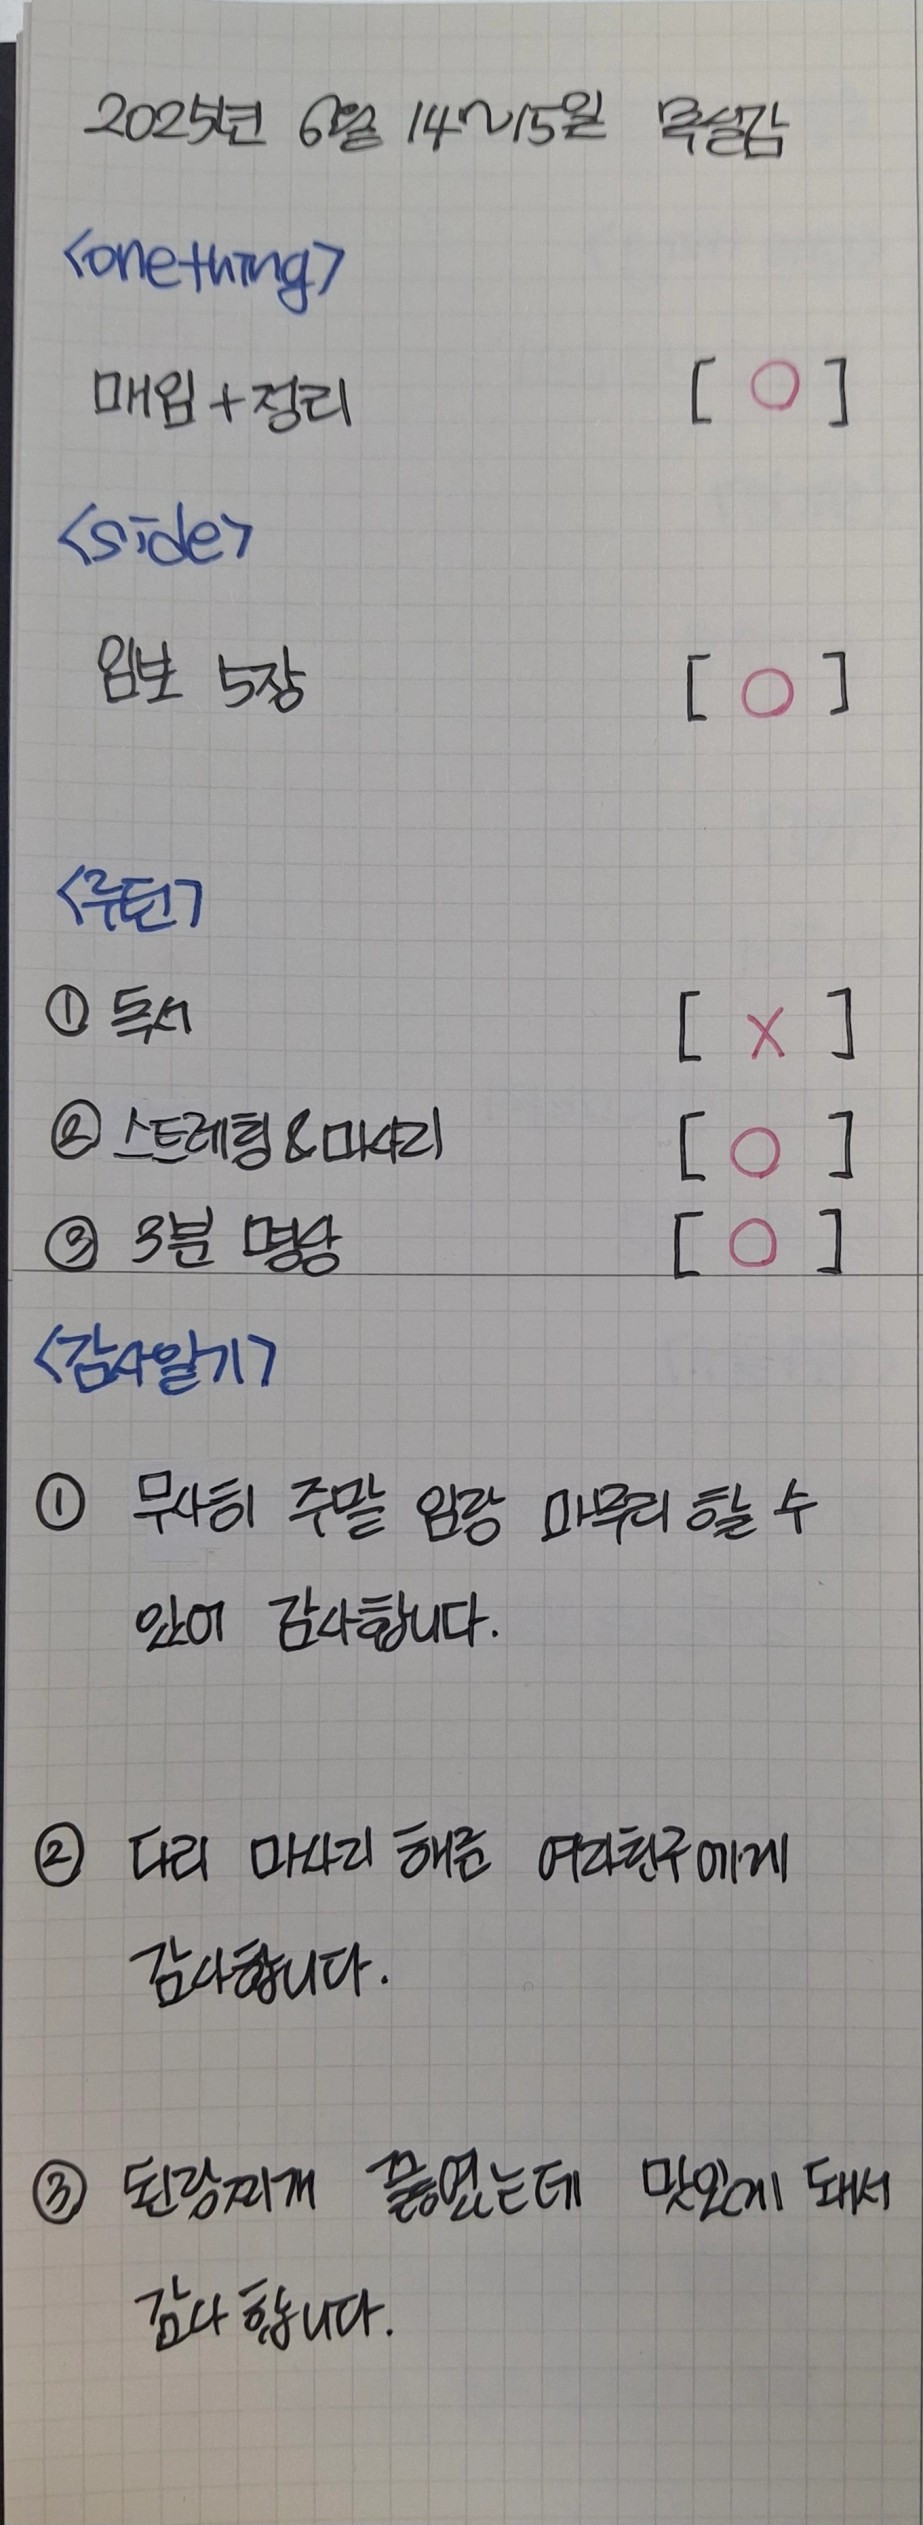 2025년 6월 14~15일 목실감
<onething>
매임+정리 [ O ]
<side>
임보 5장 [ O ]
<루틴>
① 독서 [ X ]
② 스트레칭&마사지 [ O ]
③ 3분 명상 [ O ]
<감사일기>
① 무사히 주말 임장 마무리 할 수
있어 감사합니다.
② 다리 마사지 해준 여자친구에게
감사합니다.
③ 된장찌개 끓였는데 맛있게 돼서
감사합니다.